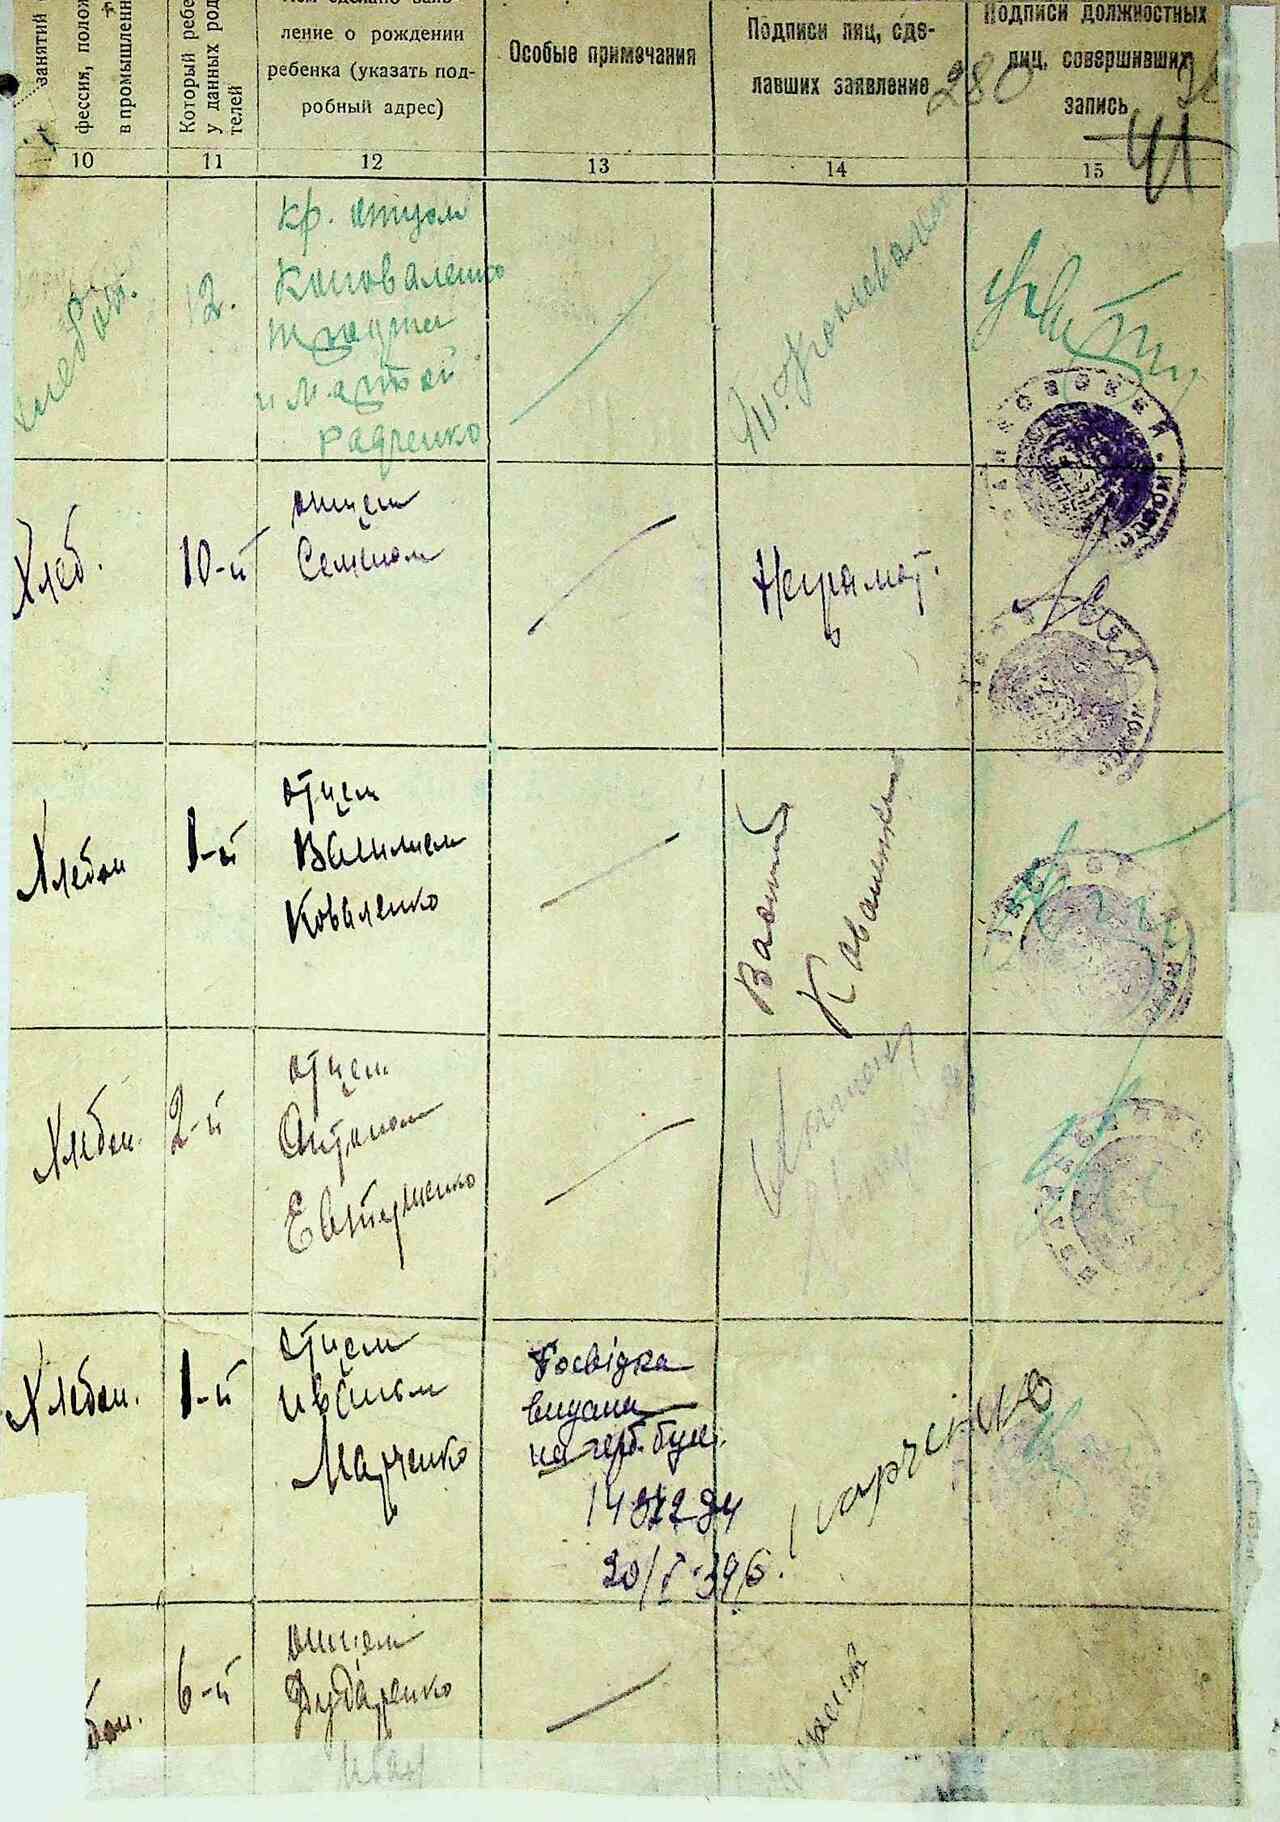 занятий
фессия, полож
в промышленн
Который ребе
у данных род
телей
ление о рождении
ребенка (указать под-
робный адрес)
Особые примечания
Подписи лиц, сде-
лавших заявление
Подписи должностных
лиц, совершивших
запись
280
41
10
11
12
13
14
15
12.
кр. отцом
Коноваленко
и Мартой
Радченко
Хлеб.
10-й
отцем
Семеном
Неграмот.
Хлебоп
1-й
отцем
Василием
Коваленко
Василь
Коваленко
Хлебоп.
2-й
отцем
Антоном
Евтушенко
Хлебоп.
1-й
отцем
Иваном
Марченко
Посвідка
видана
на герб. бум.
20/V-39 б.
Марченко
боп.
6-й
отцем
Дударенко
Иван